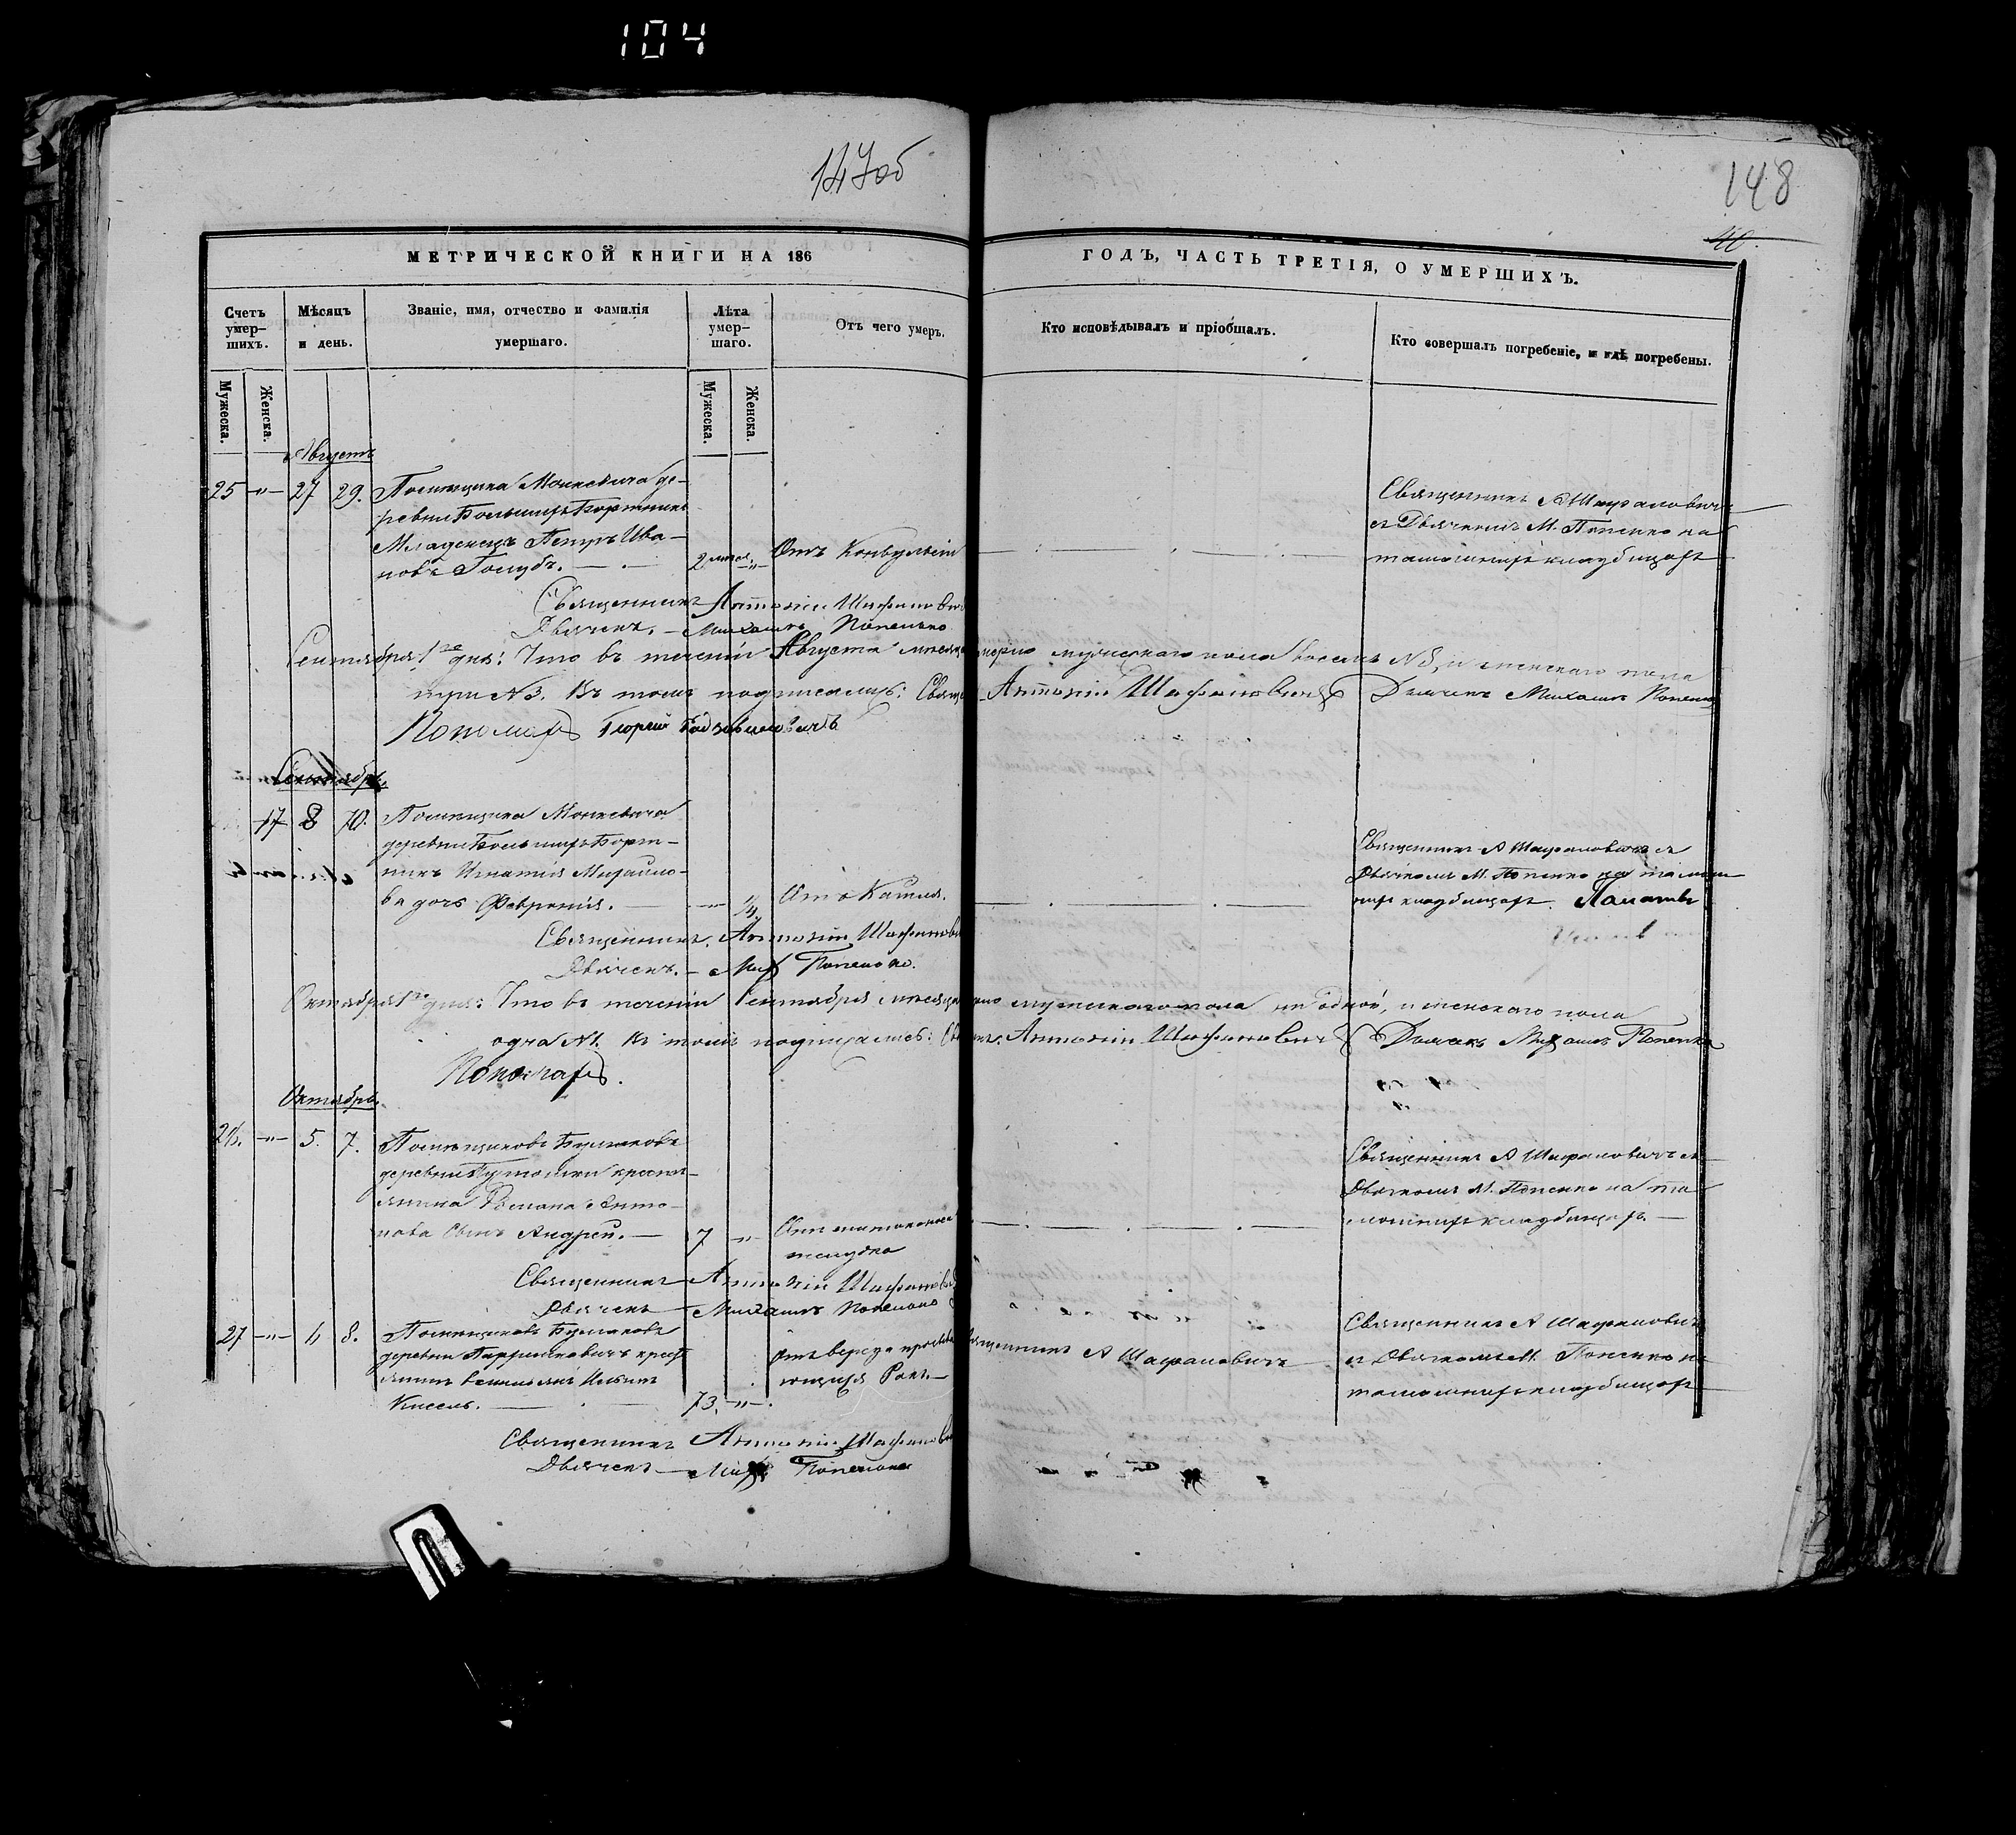 104
147об
148
40.
МЕТРИЧЕСКОЙ КНИГИ НА 186
ГОДЪ, ЧАСТЬ ТРЕТІЯ, О УМЕРШИХЪ.
Счетъ умер-
шихъ.
Мѣсяцъ
и день.
Званіе, имя, отчество и фамилія
умершаго.
Лѣта
умер-
шаго.
Отъ чего умеръ.
Кто исповѣдывалъ и пріобщалъ.
Кто совершалъ погребеніе, и гдѣ погребены.
Мужеска.
Женска.
Мужеска.
Женска.
Августъ
25 —„— 27 29. Помѣщика Монкевича де-
ревни Большихъ Бортникъ
Младенецъ Петръ Ива-
новъ Голубъ. — 2 —„— Отъ Конвульсіи
Священникъ А Шафановичъ
съ Дьячкомъ М. Попенко на
тамошнихъ кладбищахъ
Священникъ Антоній Шафанович
Дьячекъ. — Михаилъ Попенько
Сентября 1го дня: Что въ теченіи Августа мѣсяца умерло мужескаго пола восемь №8, и женскаго пола
три №3. Въ томъ подписались: Свящ. Антоній Шафановичъ Дьячекъ Михаилъ Попенко
Пономарь Георгій
Сентябрь.
17 8 10. Помѣщика Монкевича
деревни Большихъ Борт-
никъ Игнатія Михайло-
ва дочь Февронія. — —„— 1/4 Отъ Кашля.
Священникъ А Шафановичъ съ
Дьячкомъ М. Попенко на тамош-
нихъ кладбищахъ.
Священникъ. Антоній Шафанови
Дьячекъ. — Мих Попенько.
Октября 1го дня: Что въ теченіи Сентября мѣсяца умерло мужескаго пола ни одной, и женскаго пола
одна №1. Въ томъ подписались: Священ. Антоній Шафановичъ Дьячекъ Михаилъ Попенко
Пономарь.
Октябрь.
26. —„— 5. 7. Помѣщиковъ Булгаковъ
деревни крестья-
янина Романа Анто-
нова сынъ Андрей. — 7 —„—
желудка
Священникъ А Шафановичъ съ
Дьячкомъ М. Попенко на та-
мошнихъ кладбищахъ. —
Священникъ Антоній Шафанович
Дьячекъ Михаилъ Попенько
27 —„— 4 8. Помѣщиковъ Булгаковъ
деревни крест
янинъ Ильинъ
Кисель. — 73. —„—
Священникъ А Шафановичъ
Священникъ А Шафановичъ
съ Дьячкомъ М. Попенко на
тамошнихъ кладбищахъ
Священникъ Антоній Шафанов
Дьячекъ — Мих. Попенько